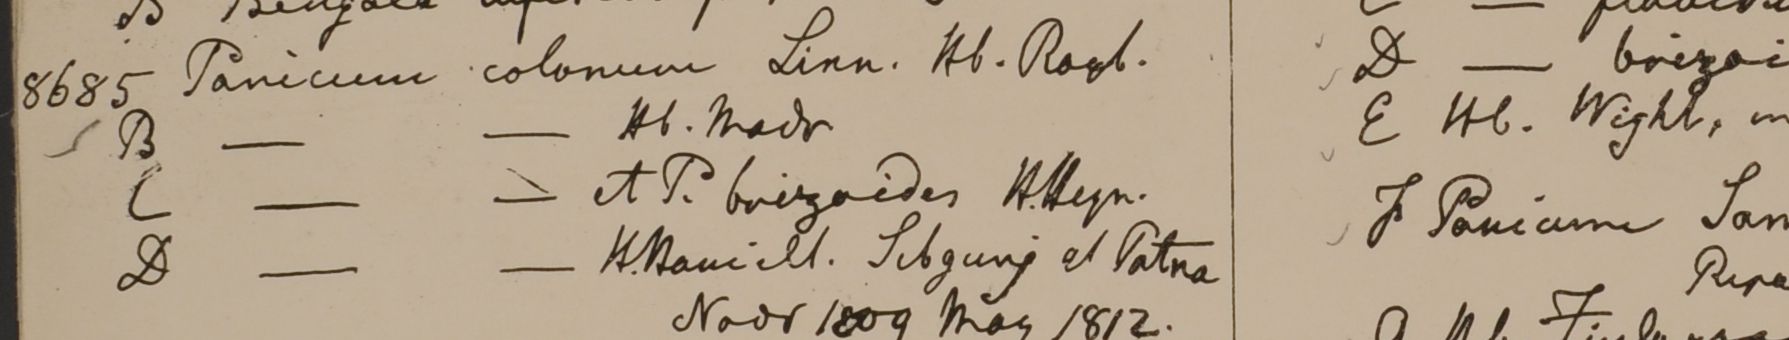 B Bengala
8685 Panicum colonum Linn. Hb. Roxb.
B — — Hb. Madr
C — — et P. brizoides H. Heyn.
D — — H. Hamilt. Sibgunj et Patna
Novr 1809 May 1812.
D — brizoi
E Hb. Wight,
F Panicum San
Ripa